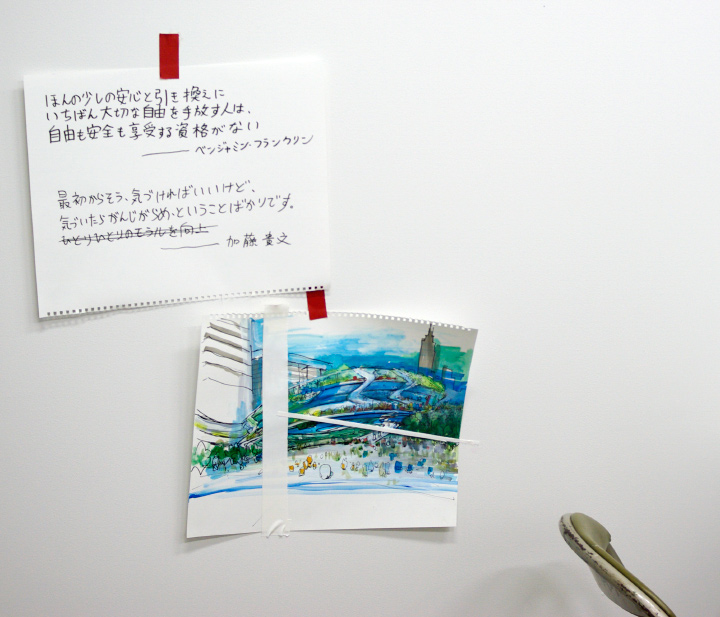 ほんの少しの安心と引き換えに
いちばん大切な自由を手放す人は、
自由も安全も享受する資格がない
—— ベンジャミン・フランクリン
最初からそう、気づければいいけど、
気づいたらがんじがらめ、ということばかりです。
ひとりひとりのモラルを向上
—— 加藤貴文